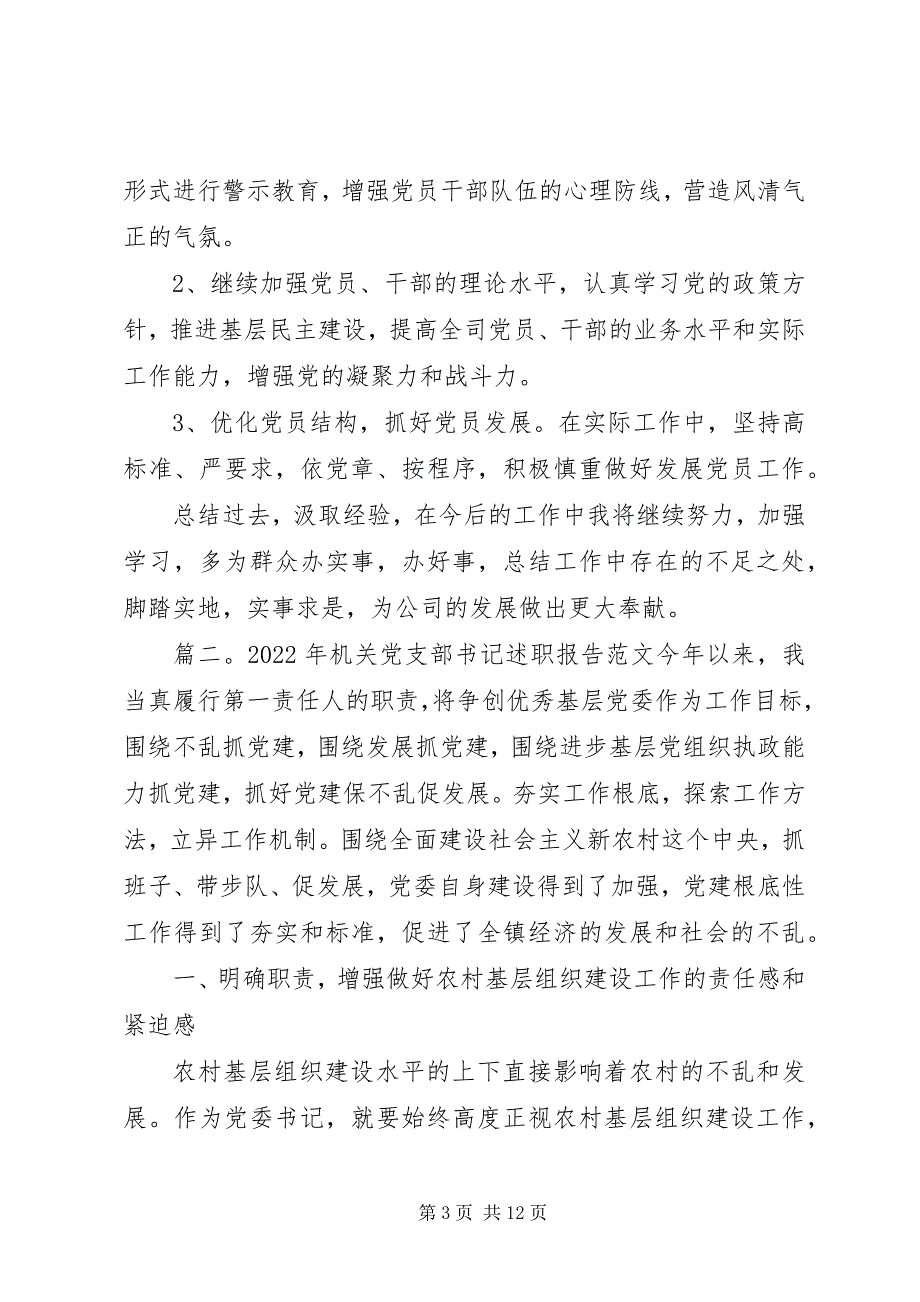 形式进行警示教育，增强党员干部队伍的心理防线，营造风清气
正的气氛。
2、继续加强党员、干部的理论水平，认真学习党的政策方
针，推进基层民主建设，提高全司党员、干部的业务水平和实际
工作能力，增强党的凝聚力和战斗力。
3、优化党员结构，抓好党员发展。在实际工作中，坚持高
标准、严要求，依党章、按程序，积极慎重做好发展党员工作。
总结过去，汲取经验，在今后的工作中我将继续努力，加强
学习，多为群众办实事，办好事，总结工作中存在的不足之处，
脚踏实地，实事求是，为公司的发展做出更大奉献。
篇二。2022 年机关党支部书记述职报告范文今年以来，我
当真履行第一责任人的职责，将争创优秀基层党委作为工作目标，
围绕不乱抓党建，围绕发展抓党建，围绕进步基层党组织执政能
力抓党建，抓好党建保不乱促发展。夯实工作根底，探索工作方
法，立异工作机制。围绕全面建设社会主义新农村这个中央，抓
班子、带步队、促发展，党委自身建设得到了加强，党建根底性
工作得到了夯实和标准，促进了全镇经济的发展和社会的不乱。
一、明确职责，增强做好农村基层组织建设工作的责任感和
紧迫感
农村基层组织建设水平的上下直接影响着农村的不乱和发
展。作为党委书记，就要始终高度正视农村基层组织建设工作，
第 3 页 共 12 页